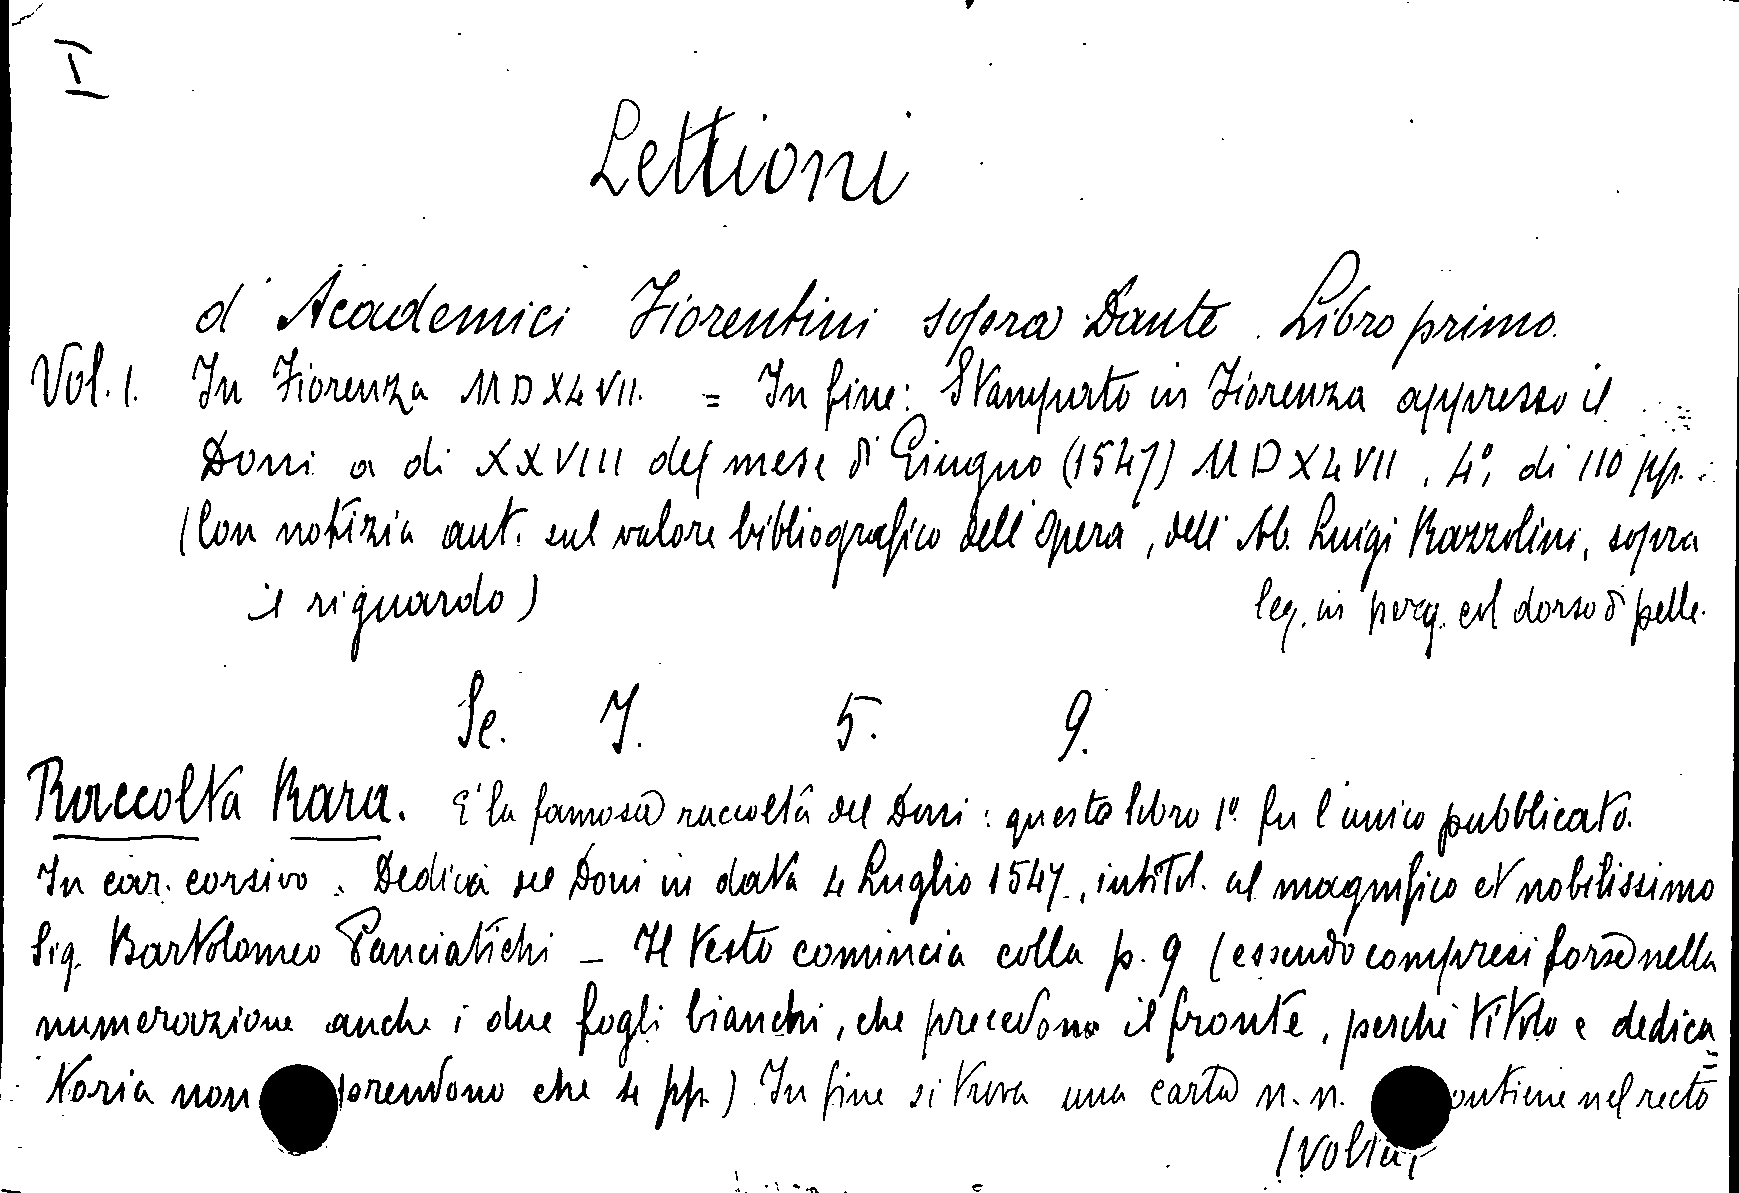 I
Lettioni
d' Academici Fiorentini sopra Dante. Libro primo.
Vol. 1. In Fiorenza MDXLVII. = In fine: Stampato in Fiorenza appresso il
Doni a di XXVIII del mese di Giugno (1547) MDXLVII, 4°, di 110 pp.
(Con notizia aut. sul valore bibliografico dell'opera, dell' Ab. Luigi Razzolini, sopra
il riguardo) leg. in perg. col dorso di pelle.
Se. 7. 5. 9.
Raccolta Rara. E' la famosa raccolta del Doni: questo libro 1° fu l'unico pubblicato.
In car. corsivo. Dedica del Doni in data 4 Luglio 1547, intitol. al magnifico et nobilissimo
Sig. Bartolomeo Panciatichi - Il testo comincia colla p. 9 (essendo compresi forse nella
numerazione anche i due fogli bianchi, che precedono il fronte, perchè titolo e dedica=
toria non prendono che 4 pp.) In fine si trova una carta n. n. contiene nel recto
(volta,